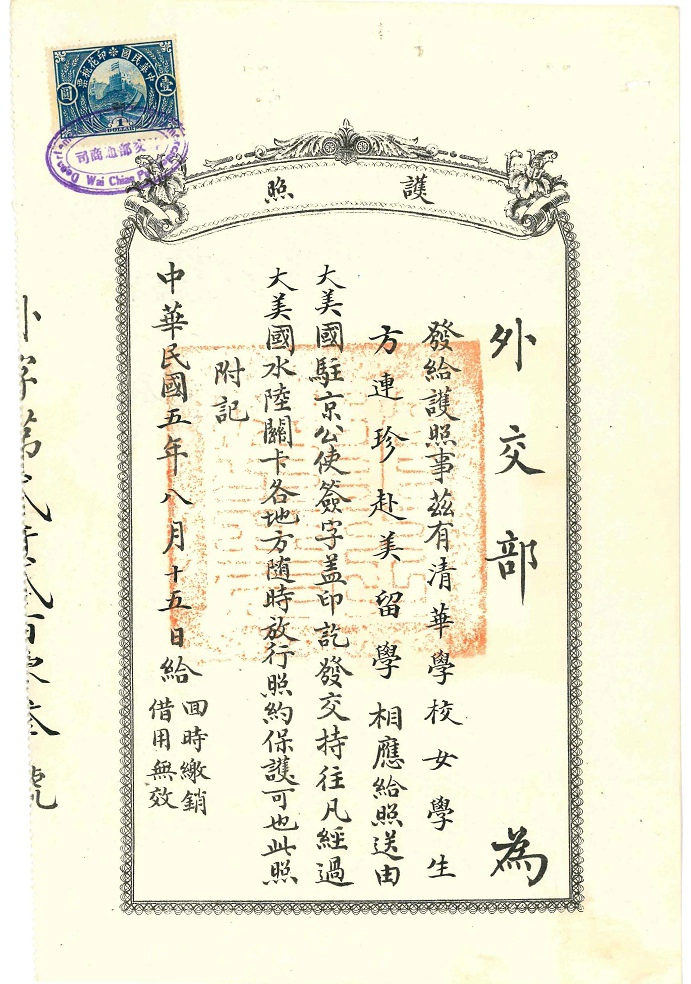 中華民國印花稅票
壹
圓
1
交部通商司
Wai Chiao Pu
護照
外交部 為
發給護照事茲有清華學校女學生
方連珍赴美留學相應給照送由
大美國駐京公使簽字盖印訖發交持往凡經過
大美國水陸關卡各地方随時放行照約保護可也此照
附記
中華民國五年八月十五日給
回時繳銷
借用無效
號